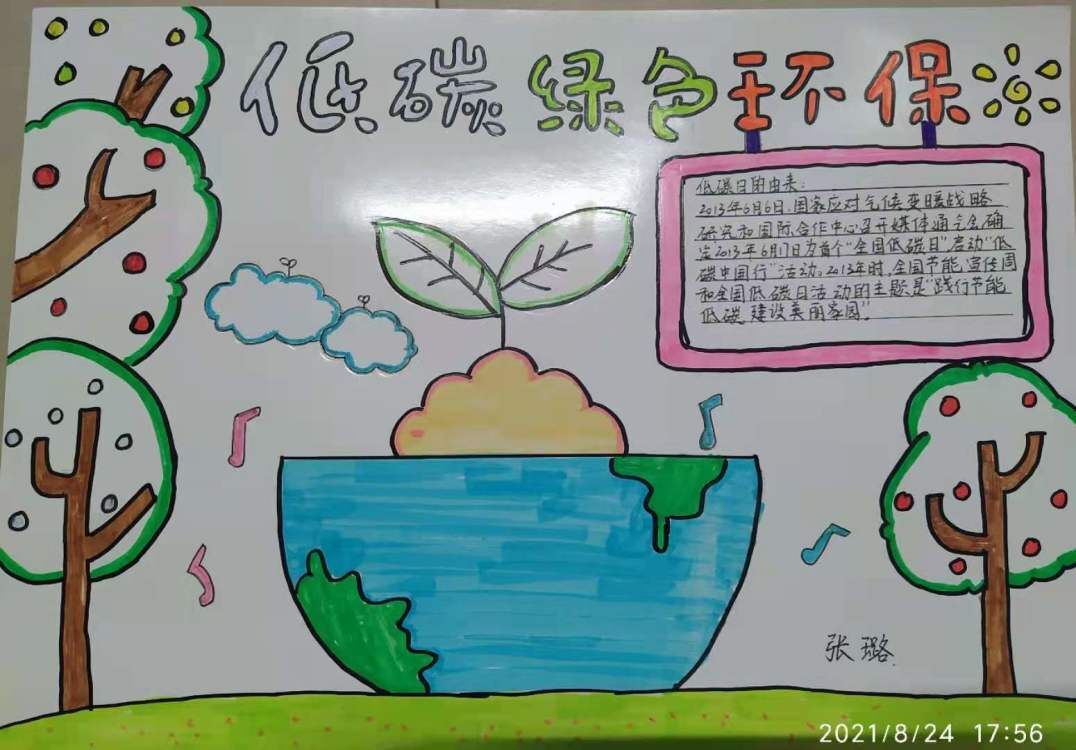 低碳绿色环保
低碳日的由来:
2013年6月6日,国家应对气候变暖战略
研究和国际合作中心召开媒体通气会确
定2013年6月17日为首个“全国低碳日”启动“低
碳中国行”活动。2013年时,全国节能宣传周
和全国低碳日活动的主题是“践行节能
低碳 建设美丽家园”。
张璐
2021/8/24 17:56